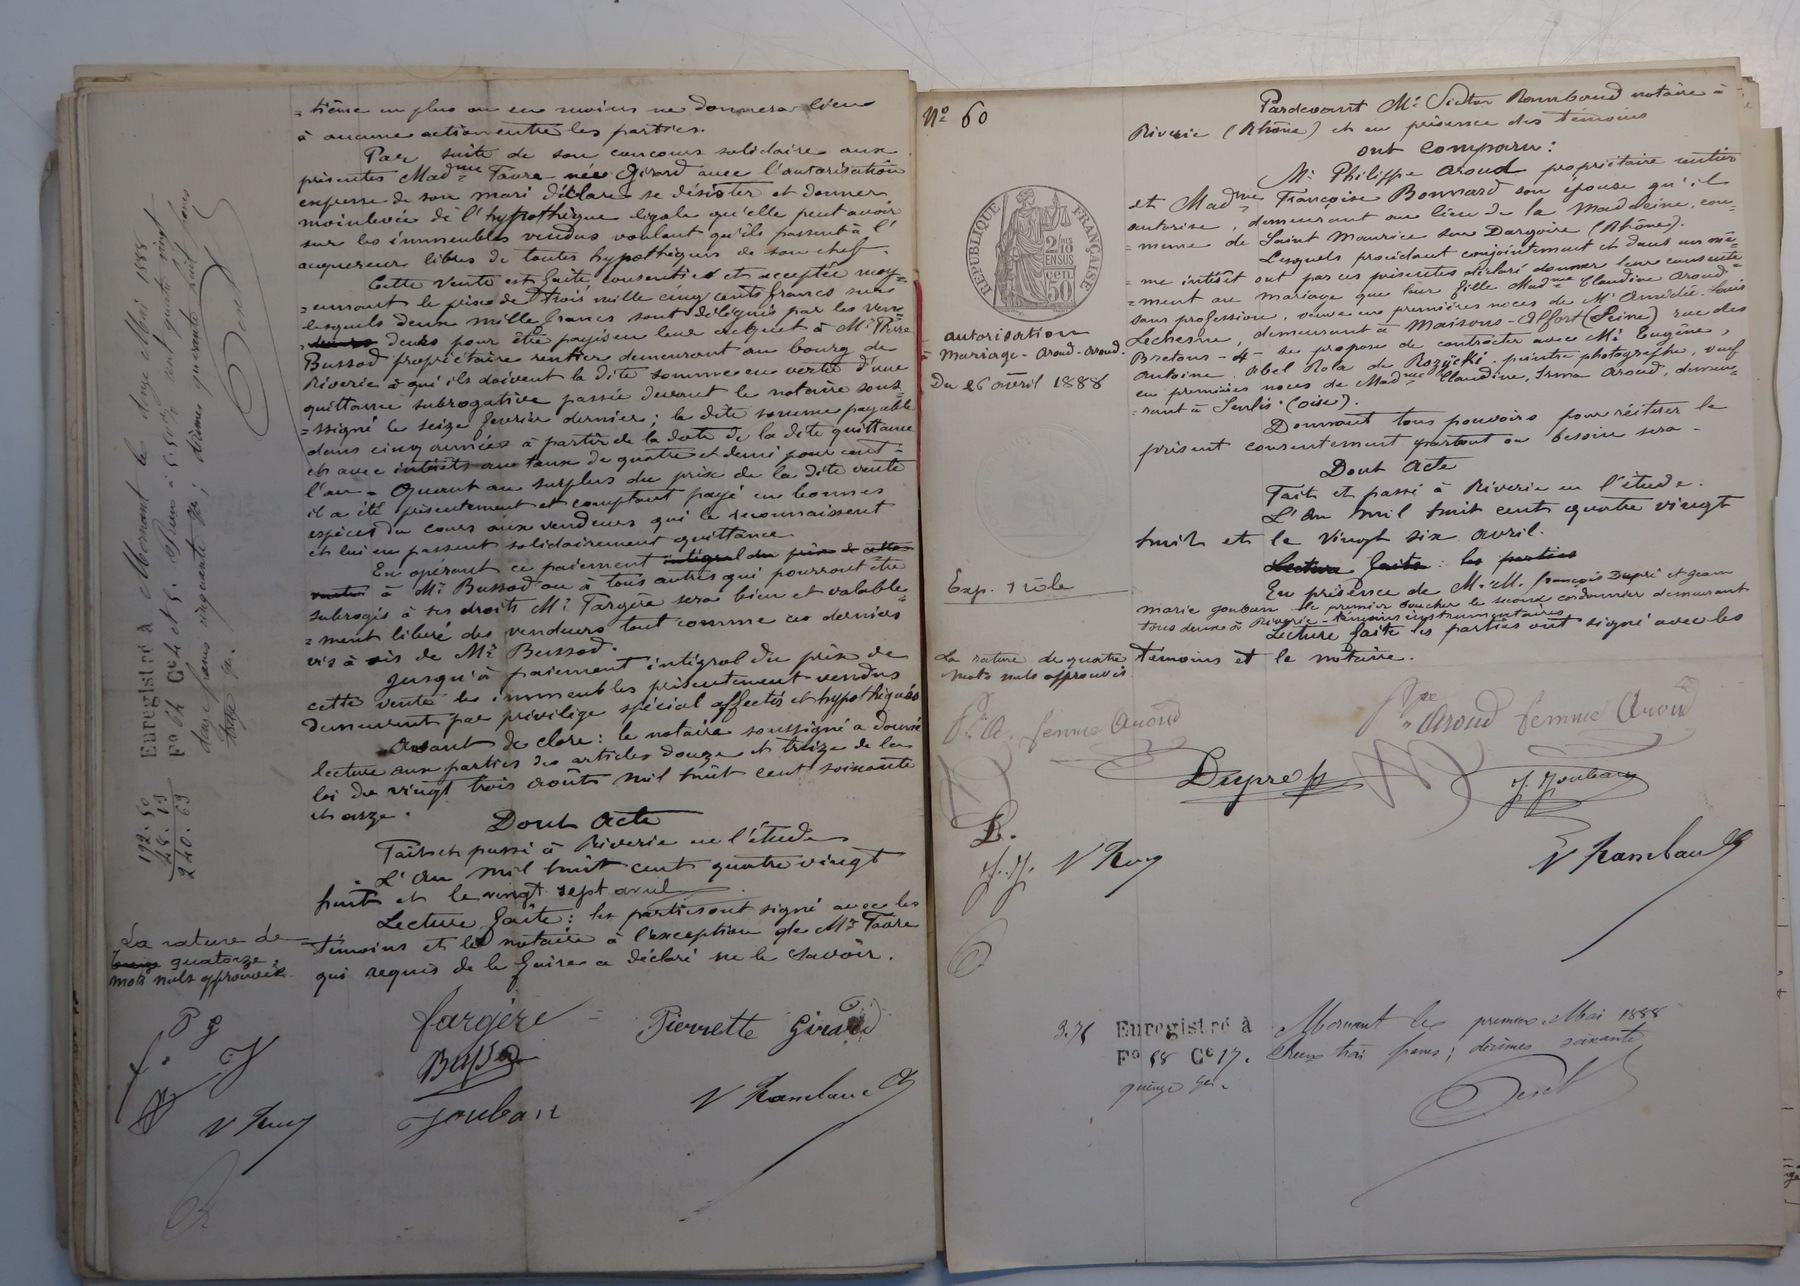 -tième en plus ou en moins ne donnera lieu
à aucune action entre les parties.
Par suite de son concours solidaire aux
présentes Madme Favre née Girard avec l'autorisation
expresse de son mari déclare se désister et donner
mainlevée de l'hypothèque légale qu'elle peut avoir
sur les immeubles vendus voulant qu'ils passent à l'
acquereur libres de toutes hypothèques de son chef.
Cette vente est faite, consentie et acceptée moy-
-ennant le prix de trois mille cinq cents francs sur
lesquels deux mille francs sont délégués par les ven-
deurs pour être payés en leur acquet à Mr
Bussod propriétaire rentier demeurant au bourg de
Riverie à qui ils doivent la dite somme en vertu d'une
quittance subrogative passée devant le notaire sous-
-ssigné le seize février dernier; la dite somme payable
dans cinq années à partir de la date de la dite quittance
et avec intérêts au taux de quatre et demi pour cent
l'an - Quant au surplus du prix de la dite vente
il a été présentement et comptant payé en bonnes
espèces du cours aux vendeurs qui le reconnaissent
et lui en passent solidairement quittance
En opérant ce paiement intégral du prix de cette
vente à Mr Bussod ou à tous autres qui pourront être
subrogés à ses droits Mr Fargère sera bien et valable-
-ment libéré des vendeurs tout comme ces derniers
vis à vis de Mr Bussod.
Jusqu'à paiement intégral du prix de
cette vente les immeubles présentement vendus
demeurent par privilège spécial affectés et hypothéqués
Avant de clore: le notaire soussigné a donné
lecture aux parties des articles douze et treize de la
loi du vingt trois août mil huit cent soixante
et onze.
Dont Acte
Fait et passé à Riverie en l'étude
L'an mil huit cent quatre vingt
huit et le vingt sept avril
Lecture faite: les parties ont signé avec les
témoins et le notaire à l'exception de Mr Favre
qui requis de le faire a déclaré ne le savoir.
La rature de
quatorze
mots nuls approuvée
P g
Fargère
Pierrette Girard
Bussod
Jouban
V Rambaud
Enregistré à Mornant le douze Mai 1888
Fo 64 Ce 4 et 5.
192.50
48.19
240.69
No 60
REPUBLIQUE FRANÇAISE
2/10 EN SUS
50 cen
autorisation
mariage - Aroud-Aroud.
Du 26 avril 1888
Exp. 1 rôle
Pardevant Me Victor Rambaud notaire à
Riverie (Rhône) et en présence des témoins
ont comparu:
Mr Philippe Aroud propriétaire rentier
et Madme Françoise Bonnard son épouse qu'il
autorise, demeurant au lieu de la Madeleine, com-
-mune de Saint Maurice sur Dargoire (Rhône).
Lesquels procédant conjointement et dans un mê-
me intérêt ont par ces présentes déclaré donner leur consente-
-ment au mariage que leur fille Madme Claudine Aroud
sans profession, veuve en premières noces de Mr Amédée Louis
Lechesne, demeurant à Maisons-Alfort (Seine) rue des
Bretons - 4 - se propose de contracter avec Mr Eugène,
Antoine, Abel Rola de Rozycki, peintre photographe, veuf
en premières noces de Madme Claudine, Irma Aroud, demeu-
-rant à Senlis (Oise).
Donnant tous pouvoirs pour réitérer le
présent consentement partout où besoin sera.
Dont Acte
Fait et passé à Riverie en l'étude.
L'an mil huit cent quatre vingt
huit et le vingt six avril.
Lecture faite: les parties
En présence de M.M. François Dupré et Jean
marie Jouban le premier boucher le second cordonnier demeurant
tous deux à Riverie - témoins instrumentaires
Lecture faite les parties ont signé avec les
témoins et le notaire.
La rature de quatre
mots nuls approuvée
femme Aroud
Aroud femme Aroud
Dupré
J. Jouban
J.J.
V Rambaud
3.75
Enregistré à Mornant le premier Mai 1888
Fo 68 Ce 17. Reçu trois francs; décimes soixante
quinze ces.